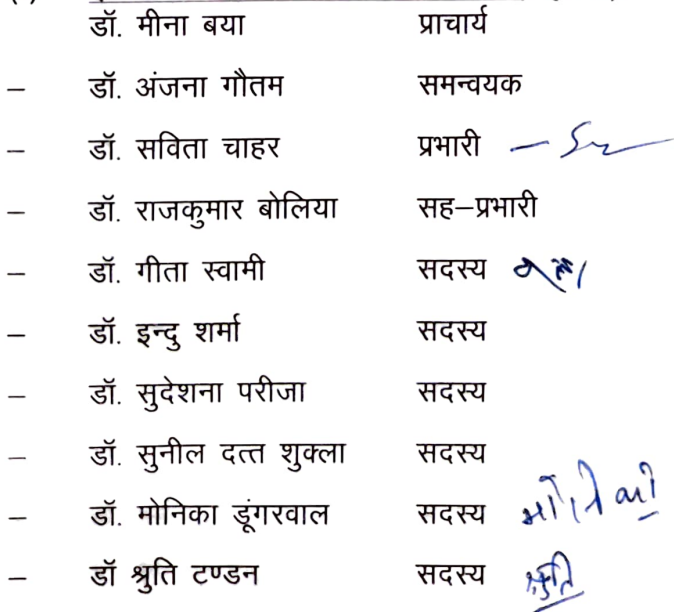 डॉ. मीना बया प्राचार्य
– डॉ. अंजना गौतम समन्वयक
– डॉ. सविता चाहर प्रभारी –
– डॉ. राजकुमार बोलिया सह–प्रभारी
– डॉ. गीता स्वामी सदस्य
– डॉ. इन्दु शर्मा सदस्य
– डॉ. सुदेशना परीजा सदस्य
– डॉ. सुनील दत्त शुक्ला सदस्य
– डॉ. मोनिका डूंगरवाल सदस्य
– डॉ श्रुति टण्डन सदस्य श्रुति